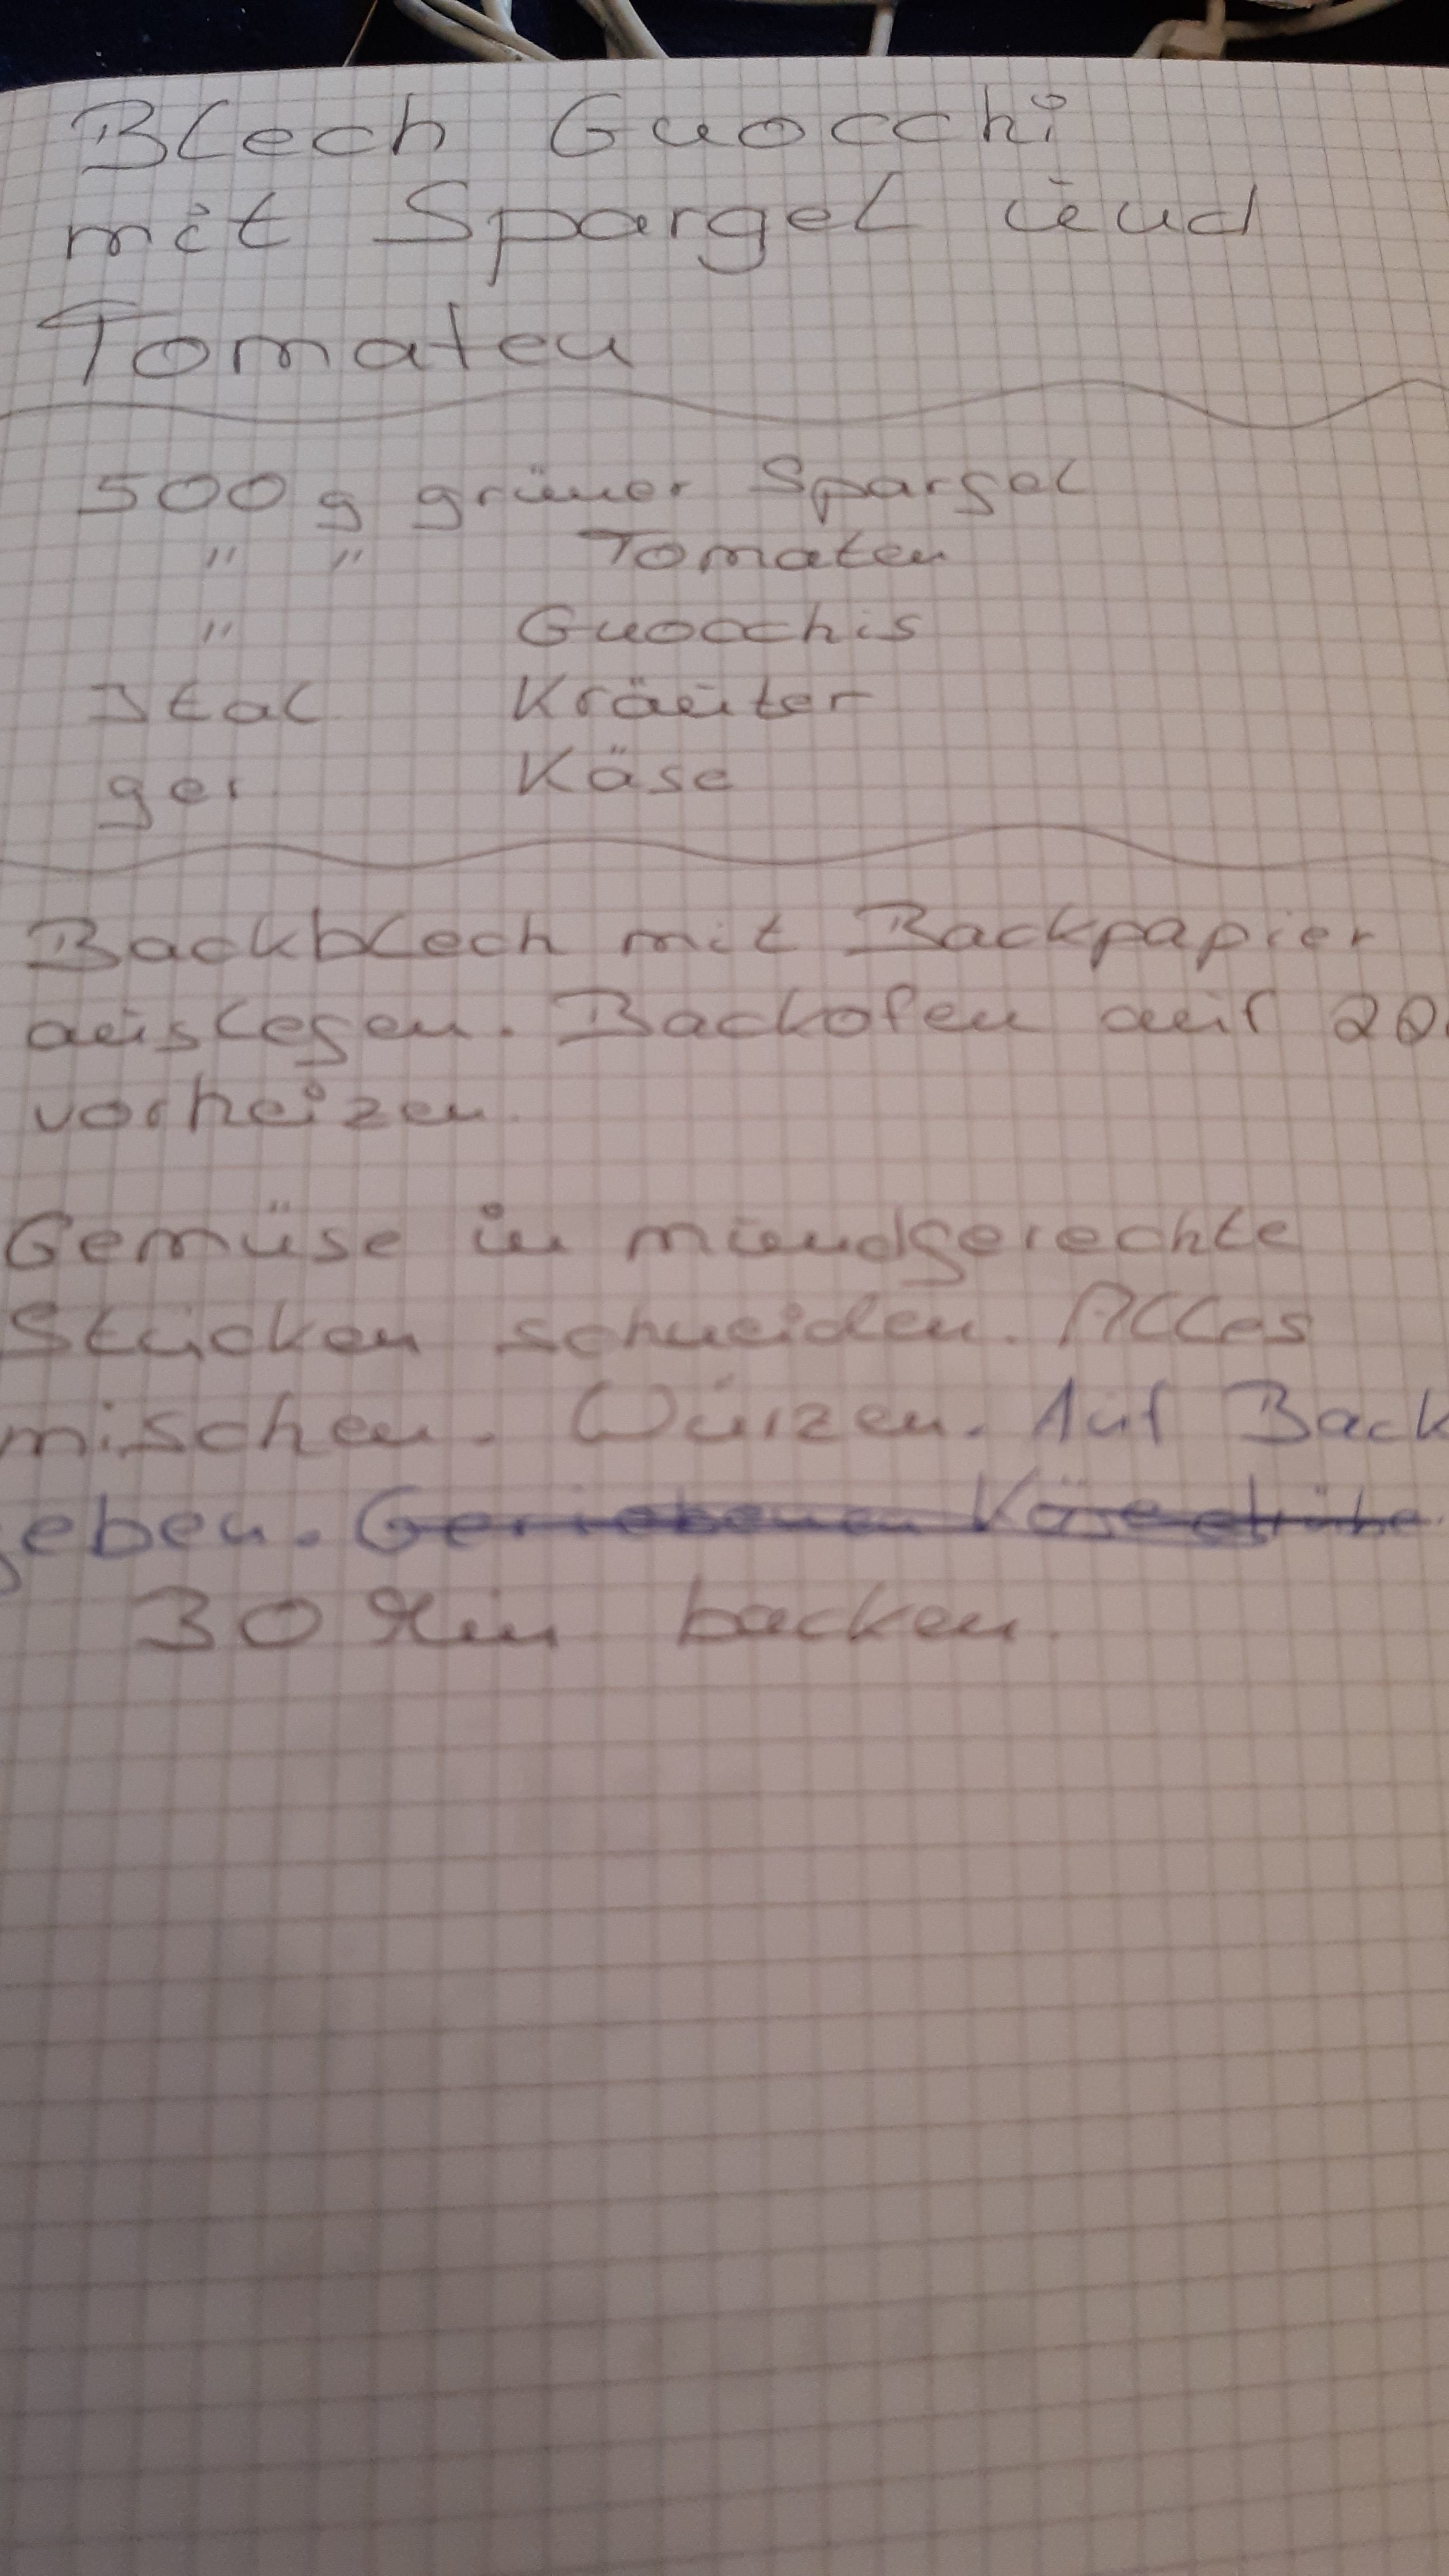 Blech Gnocchi
mit Spargel und
Tomaten
500 g grüner Spargel
" " Tomaten
" Gnocchis
Ital Kräuter
ger Käse
Backblech mit Backpapier
auslegen. Backofen auf 20
vorheizen.
Gemüse in mundgerechte
Stücken schneiden. Alles
mischen. Würzen. Auf Back
geben. Geriebenen Käse drübe
30 Min backen.